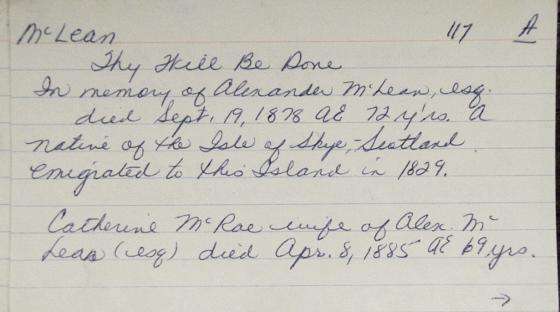 McLean 117 A
Thy Will Be Done
In memory of Alexander McLean, esq.
died Sept. 19, 1878 AE 72 yrs. A
native of the Isle of Skye, Scotland
emigrated to this Island in 1829.
Catherine McRae wife of Alex. Mc
Lean (esq) died Apr. 8, 1885 AE 69 yrs.
→